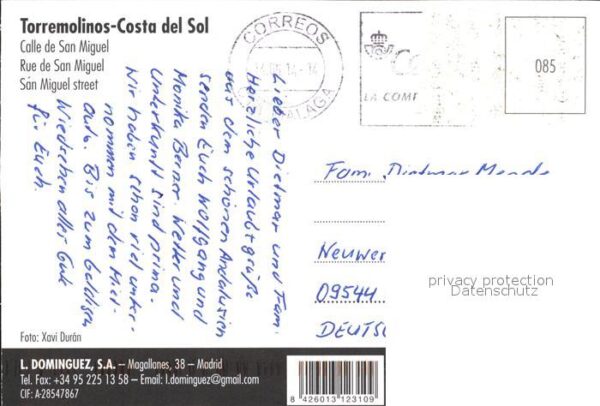 Torremolinos-Costa del Sol
Calle de San Miguel
Rue de San Miguel
San Miguel street
CORREOS
MALAGA
LA COMF
085
Lieber Dietmar und Fam.
Herzliche Urlaubsgrüße
aus dem schönen Andalusien
senden Euch Wolfgang und
Monika Berner. Wetter und
Unterkunft sind prima.
Wir haben schon viel unter-
nommen mit dem Miet-
auto. Bis zum
Wiedersehen alles Gute
für Euch.
Fam. Dietmar
Neuwer
09544
DEUTSC
privacy protection
Datenschutz
Foto: Xavi Durán
L. DOMINGUEZ, S.A. – Magallanes, 38 – Madrid
Tel. Fax: +34 95 225 13 58 – Email: l.dominguez@gmail.com
CIF: A-28547867
8 426013 123109